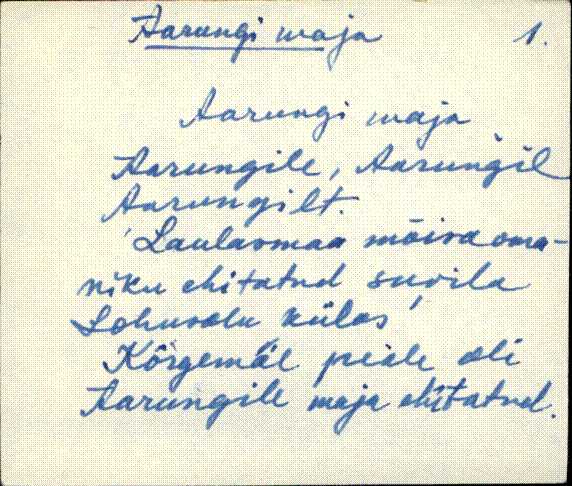 Aarungi maja 1.
Aarungi maja
Aarungile, Aarungil
Aarungilt.
'Laulasmaa mõisa oma-
niku ehitatud suvila
Lohusalu külas'
Kõrgemäl peale oli
Aarungile maja ehitatud.